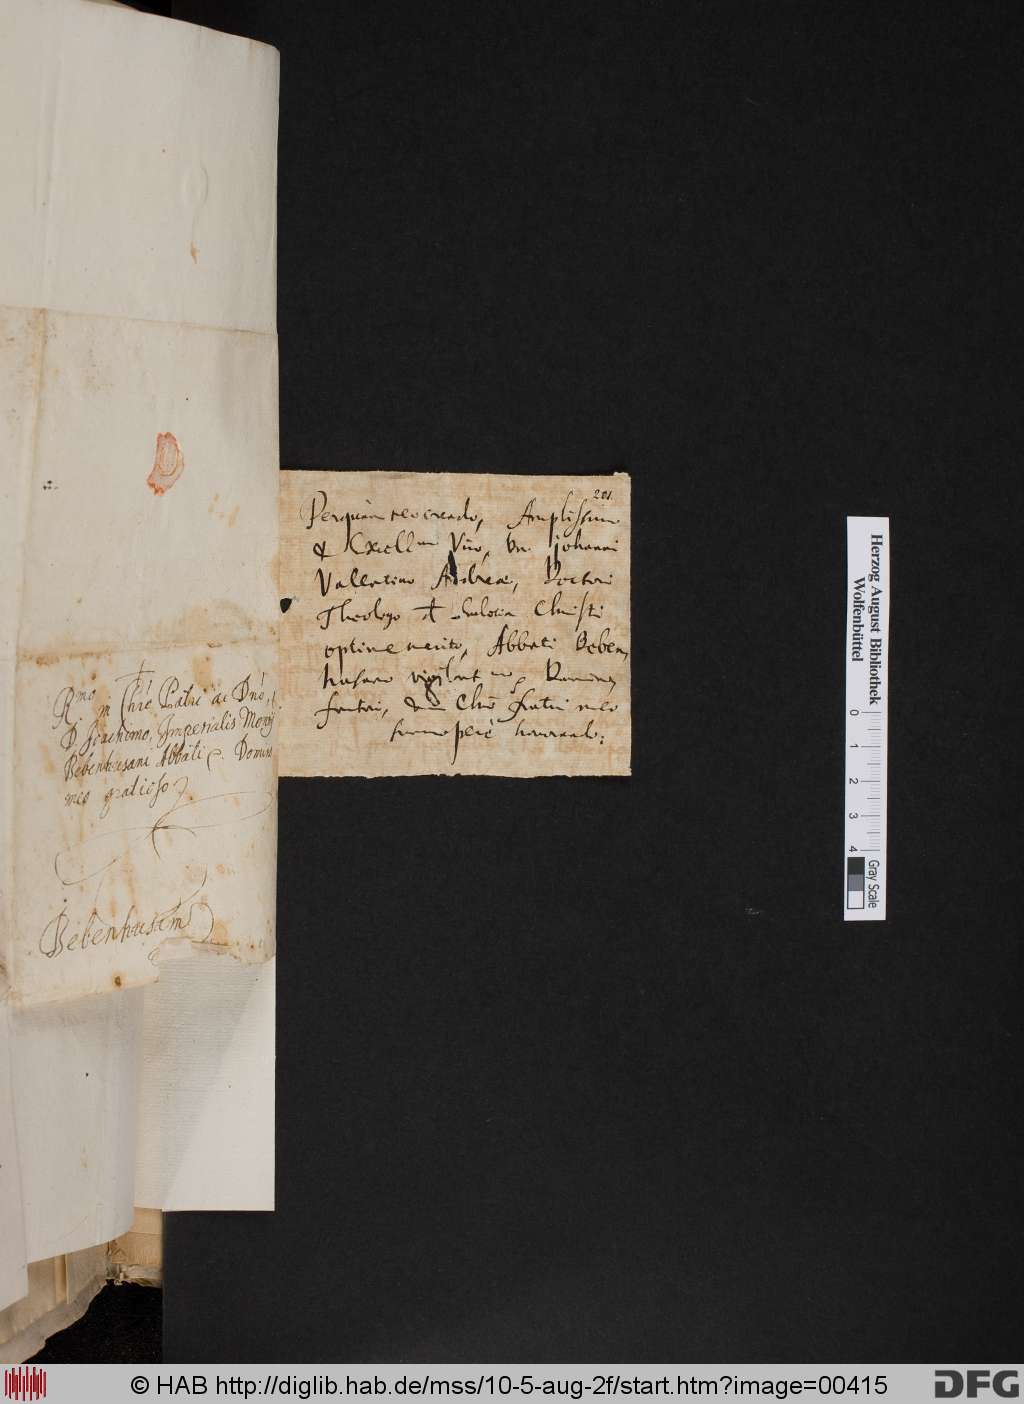 R.mo in Chr̄o Patri ac Dn̄o,
D. Joachimo, Imperialis Mon.rij
Bebenhusani Abbati p. Domino
meo gratioso
Bebenhusam
201.
Perquam reverendo, Amplissimo
& Excell.mo Viro, Dn. Johanni
Vallentino Andreæ, Doctori
Theologo & Ecclesia Christi
optime merito, Abbati Beben,
husano vigilantmo, Domino
fautori, & in Chro fratri meo
summoperè honorando;
Herzog August Bibliothek
Wolfenbüttel
0 1 2 3 4
Gray Scale
© HAB http://diglib.hab.de/mss/10-5-aug-2f/start.htm?image=00415
DFG